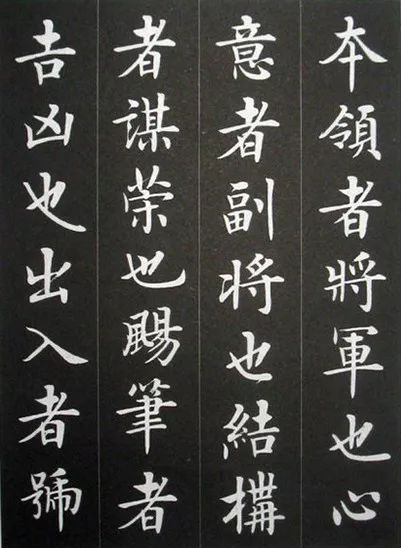 本領者將軍也心
意者副将也結構
者謀荣也颺筆者
吉凶也出入者號